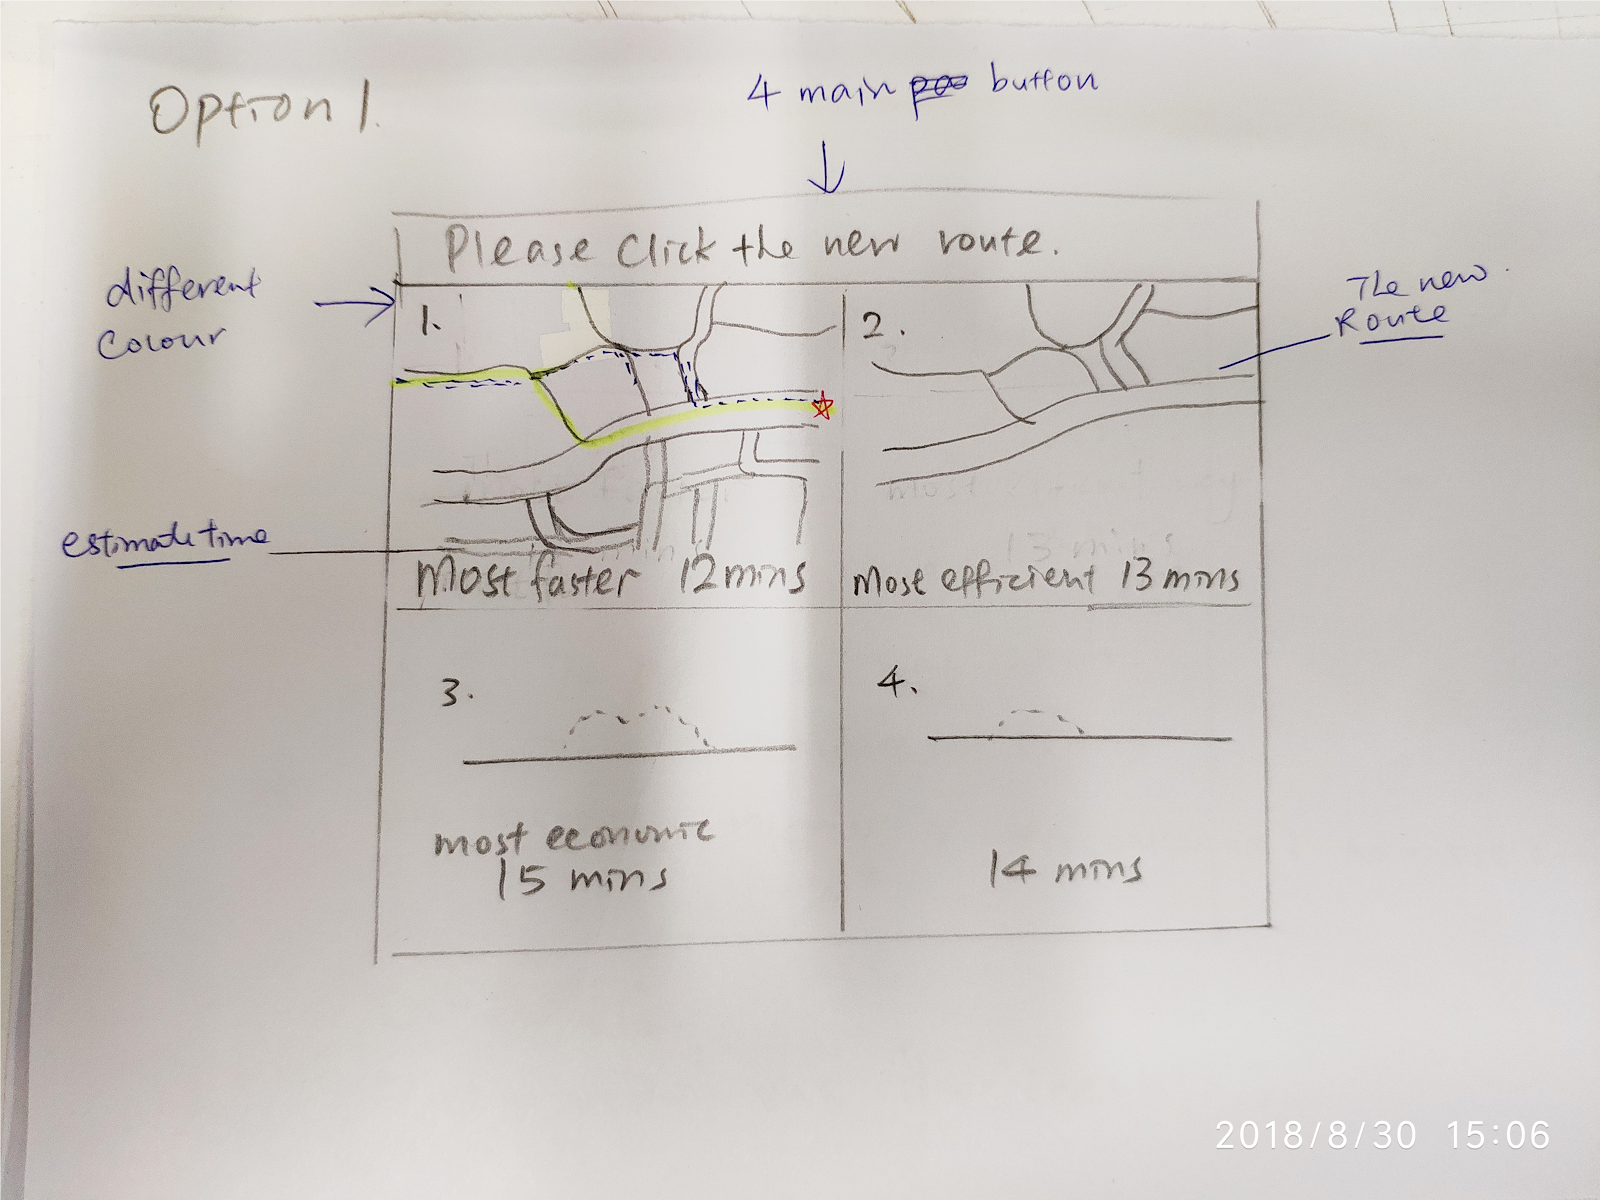 Option 1.
4 main button
Please Click the new route.
different
Colour
The new
Route
1.
2.
estimate time
Most faster 12 mins
Most efficient 13 mins
3.
4.
most economic
15 mins
14 mins
2018/8/30 15:06